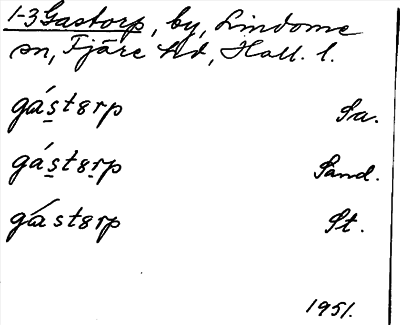 1-3 Gastorp, by, Lindome
sn, Fjäre hd, Hall. l.
gást8rp Sa.
gást8rp Sand.
gást8rp St.
1951.